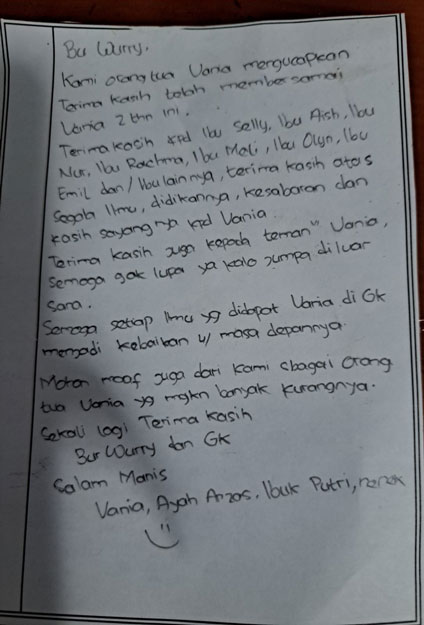 Bu Wurry.
Kami orang tua Vania mengucapkan
Terima kasih telah membersamai
Vania 2 thn ini.
Terima kasih kpd Ibu Selly, Ibu Aish, Ibu
Nur, Ibu Rachma, Ibu Meli, Ibu Olyn, Ibu
Emil dan / Ibu lainnya, terima kasih atas
segala Ilmu, didikannya, kesabaran dan
kasih sayangnya kpd Vania.
Terima kasih juga kepada teman" Vania,
Semoga gak lupa ya kalo jumpa diluar
sana.
Semoga setiap Ilmu yg didapat Vania di GK
menjadi kebaikan u/ masa depannya.
Mohon maaf juga dari kami sbagai orang
tua Vania yg mgkn banyak kurangnya.
Sekali lagi Terima kasih
Bur Wurry dan GK
Salam Manis
Vania, Ayah Anzas, Ibuk Putri, nenek